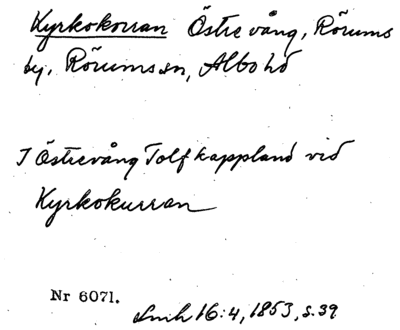 Kyrkokorran Östre vång, Rörums
by, Rörums sn, Albo hd
I Östrevång Tolf kappland vid
Kyrkokurran
Nr 6071.
Lmh 16:4, 1853, s. 39